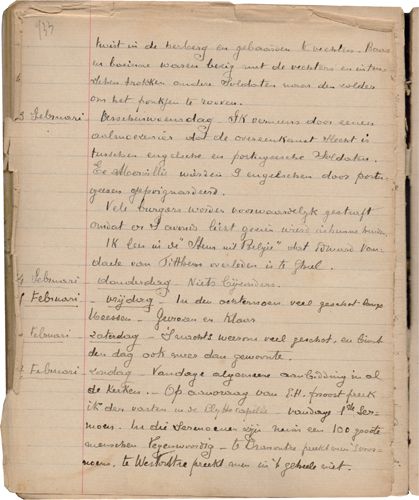 933
twist in de herberg en gebaarden te vechten. Baas
en bazinne waren bezig met de vechters en
trokken andere soldaten naar den zolder
om het ponkjen te rooven.
3 Februari Asschewoensdag - IK verneem door eenen
aalmoezenier dat de overeenkomst slecht is
tusschen engelsche en portugeesche soldaten.
Te Merville wierden 9 engelschen door portu-
geezen gepoignardeerd.
Vele burgers worden voorwaardelijk gestraft
omdat er 's avonds licht gezien wierd in hunne huizen.
IK lees in de "Stem uit België" dat Edward Van-
daele van Pitthem overleden is te Gheel.
4 Februari donderdag - Niets bijzonders.
5 Februari - vrijdag - In den achternoen veel geschot langs
Meessen -
Februari zaterdag - 's nachts weerom veel geschot, en binst
den dag ook meer dan gewoonte.
7 Februari zondag - Vandage algemeene aanbidding in al
de kerken. - Op aanvraag van E.H. proost preek
ik den vasten in de Clytte capelle - vandage 1ste Ser-
moen. In die Sermoenen zijn nu een 100 groote
menschen tegenwoordig - te Dranoutre preekt men
moens, te Westoutre preekt men in 't geheele niet.